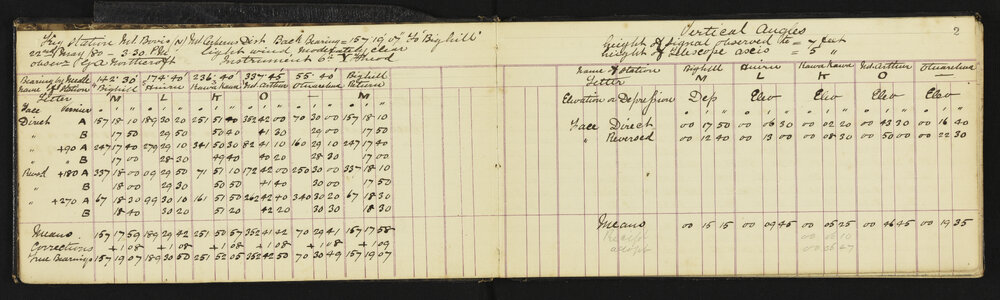 Trig Station Mt. Bovis (N) Mt Cerberus Dist Back Bearing = 157 19 07 to "Bighill"
22nd May 80 - 3.30 P.M. light wind, moderately clear
observ G.A. Northcroft Instrument 6in Theod
Bearing by Needle 142° 30' 174° 40' 236° 40' 337° 45 55° 40' Bighill
Name of Station Bighill Huiru Kawa Kawa Mt. Arthur Otuarelua Return
Letter M L K O — M
Face Vernier
Direct A 157 18 10 189 30 20 251 51 40 352 42 00 70 30 00 157 18 10
" B 17 50 29 50 50 40 41 30 29 00 17 50
" +90 A 247 17 40 279 29 10 341 50 30 82 41 10 160 29 10 247 17 40
" B 17 00 28 30 49 40 40 20 28 30 17 00
Revsd +180 A 337 18 00 09 29 50 71 51 10 172 42 00 250 30 00 337 18 10
" B 18 00 29 30 50 50 41 40 30 00 17 50
" +270 A 67 18 30 99 30 10 161 51 50 262 42 40 340 30 20 67 18 30
B 18 40 30 20 51 20 42 20 30 30 18 30
Means 157 17 59 189 29 42 251 50 57 352 41 42 70 29 41 157 17 58
Corrections +1 08 +1 08 +1 08 +1 08 +1 08 +1 09
True Bearings 157 19 07 189 30 50 251 52 05 352 42 50 70 30 49 157 19 07
2
Vertical Angles
height of signal observed to = 7 feet
height of telescope axis = 5 "
Name of Station Bighill Huiru Kawa Kawa Mt. Arthur Otuarelua
Letter M L K O —
Elevation or Depression Dep Elev Elev Elev Elev
Face Direct 00 17 50 00 06 30 00 02 20 00 43 30 00 16 40
" Reversed 00 12 40 00 13 00 00 08 30 00 50 00 00 22 30
Means 00 15 15 00 09 45 00 05 25 00 46 45 00 19 35